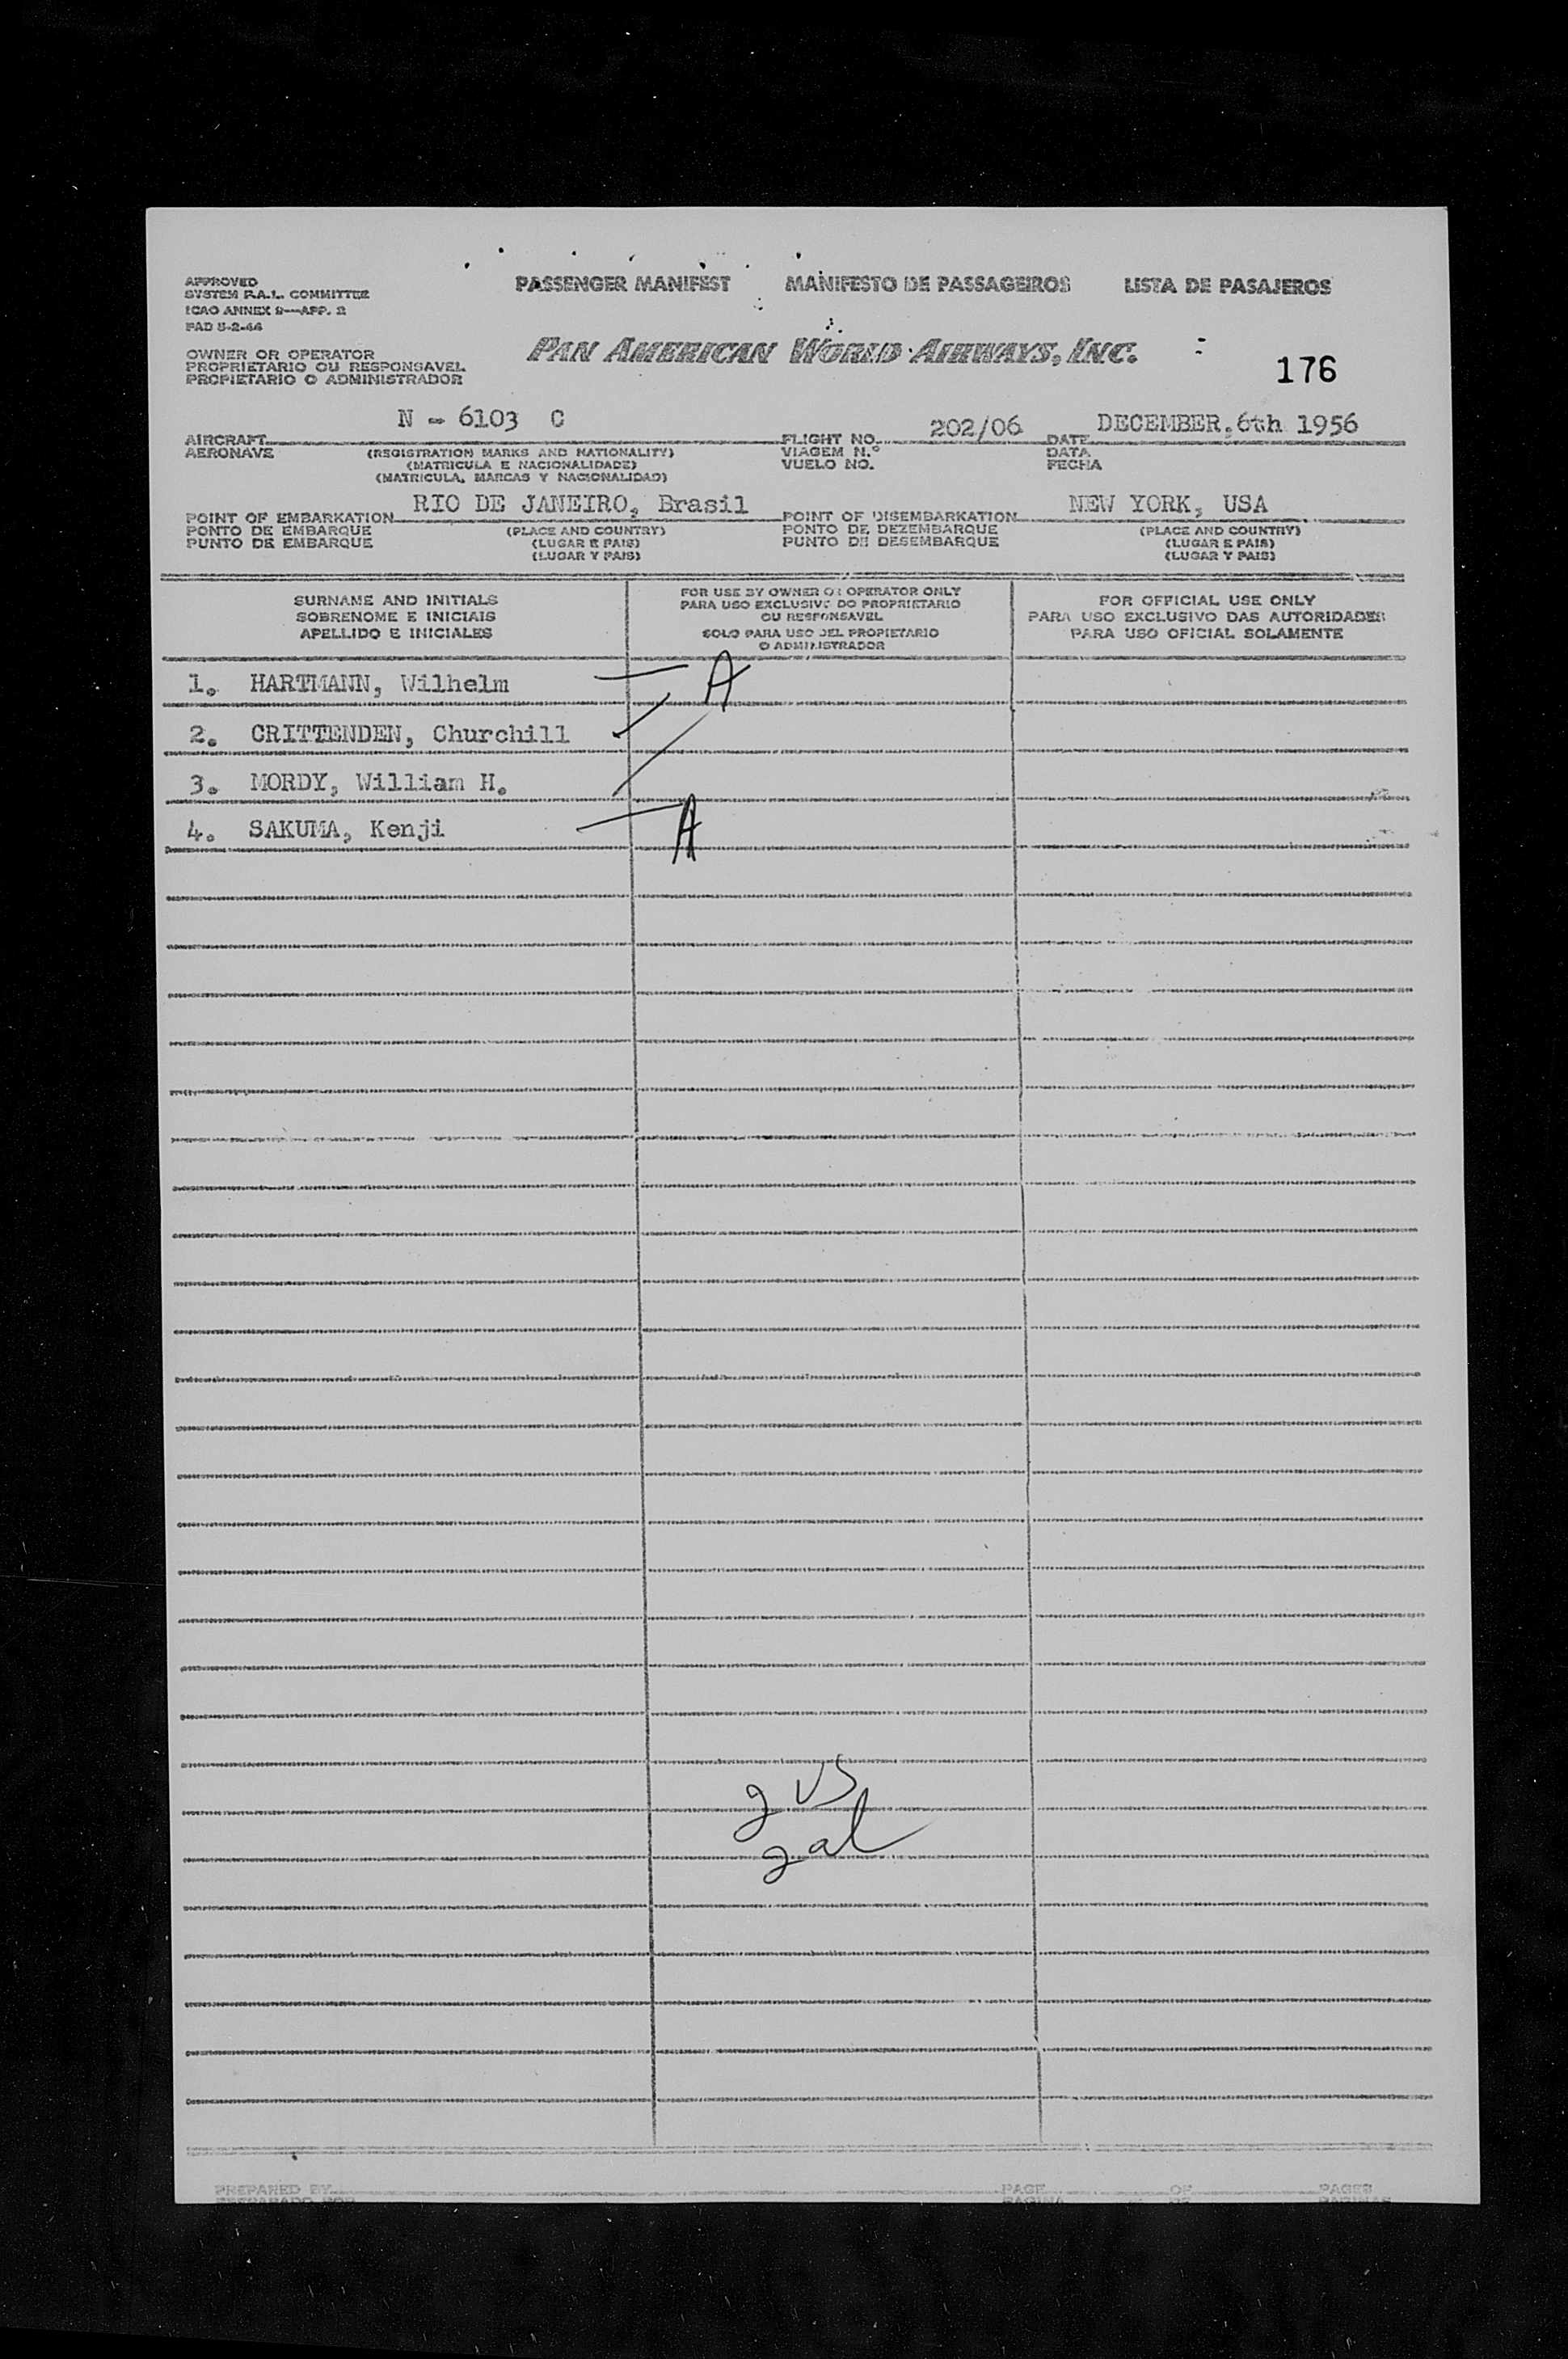 APPROVED
SYSTEM P.A.L. COMMITTEE
ICAO ANNEX 9—APP. 2
PAD 5-2-44
PASSENGER MANIFEST MANIFESTO DE PASSAGEIROS LISTA DE PASAJEROS
PAN AMERICAN WORLD AIRWAYS, INC.
176
OWNER OR OPERATOR
PROPRIETARIO OU RESPONSAVEL
PROPIETARIO O ADMINISTRADOR
N - 6103 C 202/06 DECEMBER.6th 1956
AIRCRAFT FLIGHT NO. DATE
AERONAVE (REGISTRATION MARKS AND NATIONALITY) VIAGEM N.º DATA
(MATRICULA E NACIONALIDADE) VUELO NO. FECHA
(MATRICULA, MARCAS Y NACIONALIDAD)
RIO DE JANEIRO, Brasil NEW YORK, USA
POINT OF EMBARKATION POINT OF DISEMBARKATION
PONTO DE EMBARQUE (PLACE AND COUNTRY) PONTO DE DEZEMBARQUE (PLACE AND COUNTRY)
PUNTO DE EMBARQUE (LUGAR E PAIS) PUNTO DE DESEMBARQUE (LUGAR E PAIS)
(LUGAR Y PAIS) (LUGAR Y PAIS)
SURNAME AND INITIALS
SOBRENOME E INICIAIS
APELLIDO E INICIALES
FOR USE BY OWNER OR OPERATOR ONLY
PARA USO EXCLUSIVO DO PROPRIETARIO
OU RESPONSAVEL
SOLO PARA USO DEL PROPIETARIO
O ADMINISTRADOR
FOR OFFICIAL USE ONLY
PARA USO EXCLUSIVO DAS AUTORIDADES
PARA USO OFICIAL SOLAMENTE
1. HARTMANN, Wilhelm A
2. CRITTENDEN, Churchill
3. MORDY, William H.
4. SAKUMA, Kenji A
2 US
2 al
PREPARED BY PAGE OF PAGES